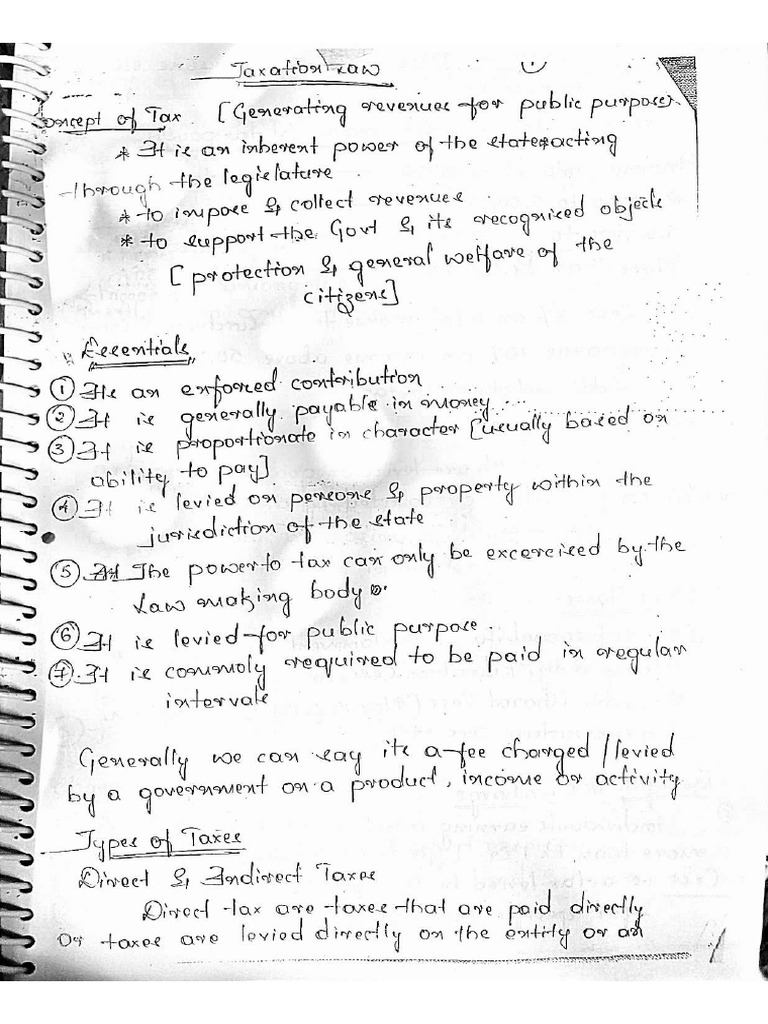 Taxation Law
1
Concept of Tax [Generating revenues for public purpose].
* It is an inherent power of the state acting
through the legislature
* to impose & collect revenues
* to support the Govt & its recognised objects
[protection & general welfare of the
citizens]
Essentials
① Its an enforced contribution
② It is generally payable in money
③ It is proportionate in character [usually based on
ability to pay]
④ It is levied on persons & property within the
jurisdiction of the state
⑤ The power to tax can only be excercised by the
Law making body
⑥ It is levied for public purpose.
⑦ It is commoly required to be paid in regular
intervals
Generally we can say its a fee charged / levied
by a government on a product, income or activity
Types of Taxes
Direct & Indirect Taxes
Direct tax are taxes that are paid directly
or taxes are levied directly on the entity or an